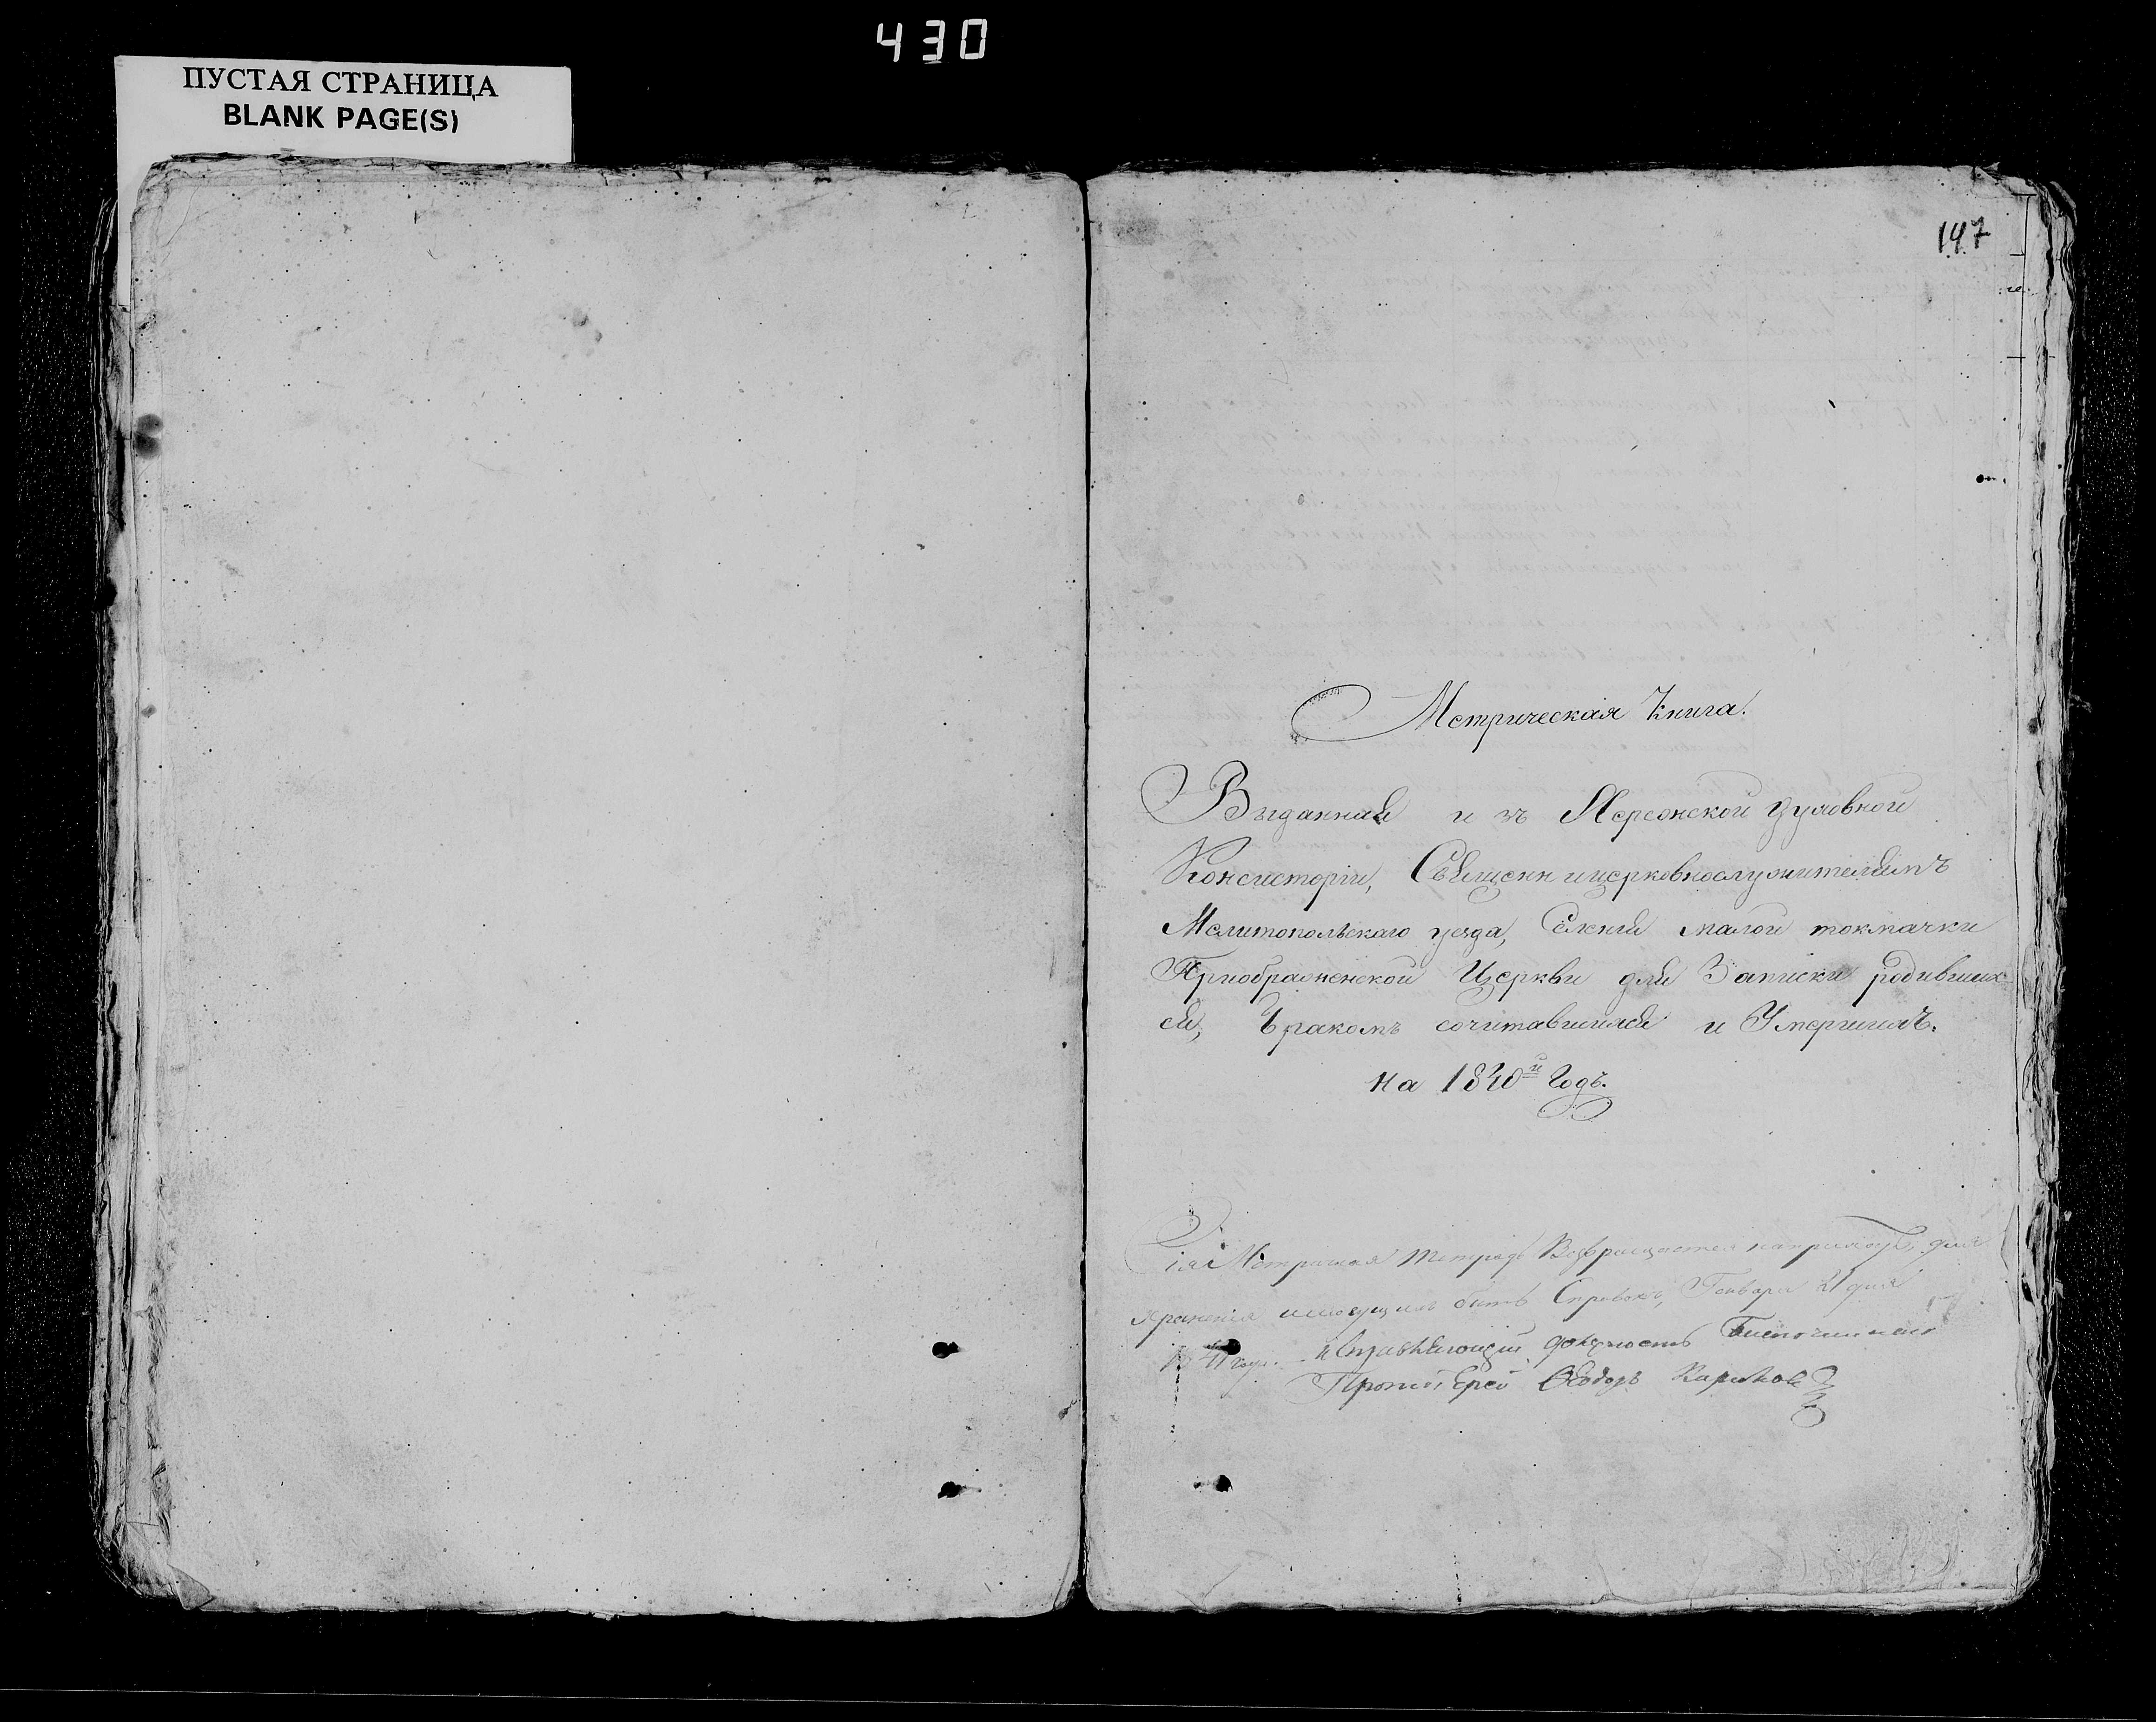 430
ПУСТАЯ СТРАНИЦА
BLANK PAGE(S)
147
Метрическая Книга.
Выданная изъ Херсонской духовной
Консисторіи, Священноицерковнослужителямъ
Мелитопольскаго уезда, Селенія малой токмачки
Приображенской Церкви для Записки родивших
ся, Бракомъ сочитавшихся и Умершихъ.
на 1840й Годъ.
Сія Метричная тетрадь Возвращается на приходъ, для
храненія имеющихъ быть Справокъ, Генваря 21 дня
1841 года. Исправляющій должность Благочиннаго
Протоіерей Ѳеодоръ